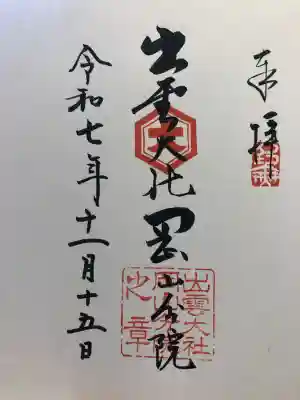 奉拝
出雲大社岡山分院
令和七年十一月十五日
出雲大社
之章